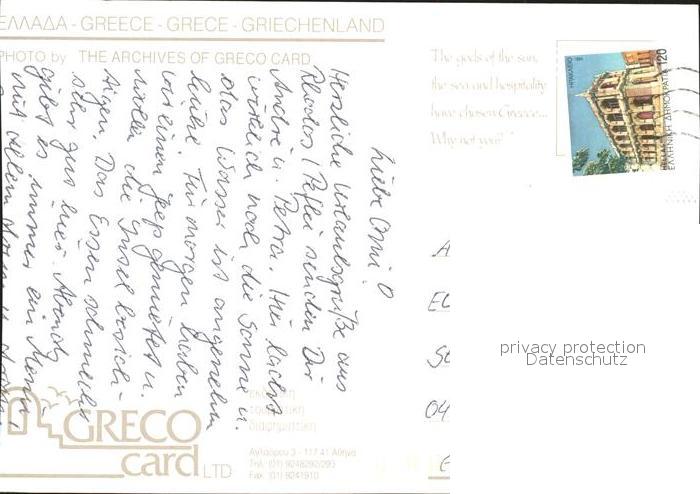 ΕΛΛΑΔΑ - GREECE - GRECE - GRIECHENLAND
PHOTO by THE ARCHIVES OF GRECO CARD
The gods of the sun,
the sea and hospitality
have chosen Greece...
Why not you?
120
ΕΛΛΗΝΙΚΗ ΔΗΜΟΚΡΑΤΙΑ
ΗΡΑΚΛΕΙΟ
Liebe Omi!
Herzliche Urlaubsgrüße aus
Rhodos / Pefki senden Dir
Andre u. Petra. Hier lacht
wirklich noch die Sonne u.
das Wasser ist angenehm
heute. Für morgen haben
wir einen Jeep gemietet u.
wollen die Insel besich-
tigen. Das Essen schmeckt
sehr gut hier. Abends
gibt es immer ein Menü
mit allem
GRECO
card LTD
εκδοτική
εμπορική
διαφημιστική
117 41 Αθήνα
Τηλ: (01) 9248292/293
Fax: (01) 9241910
A
EL
04
privacy protection
Datenschutz